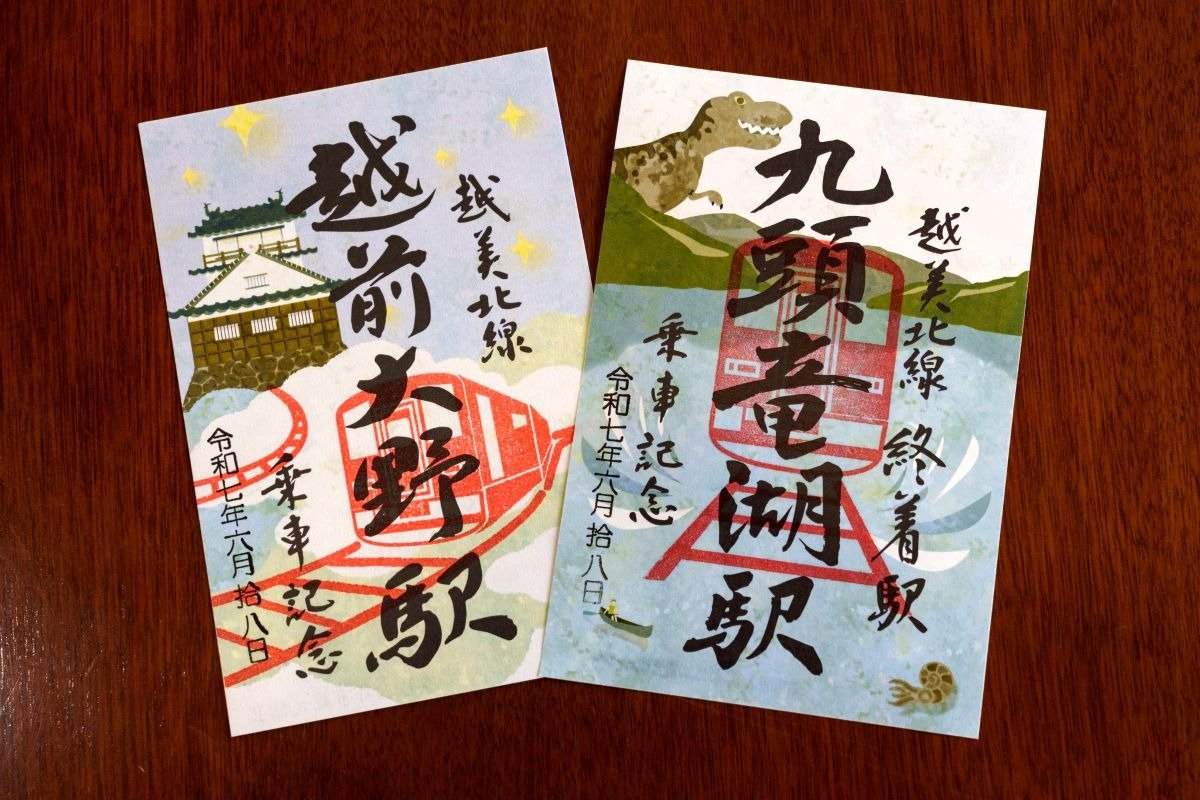 越美北線
越前大野駅
乗車記念
令和七年六月拾八日
越美北線 終着駅
九頭竜湖駅
乗車記念
令和七年六月拾八日